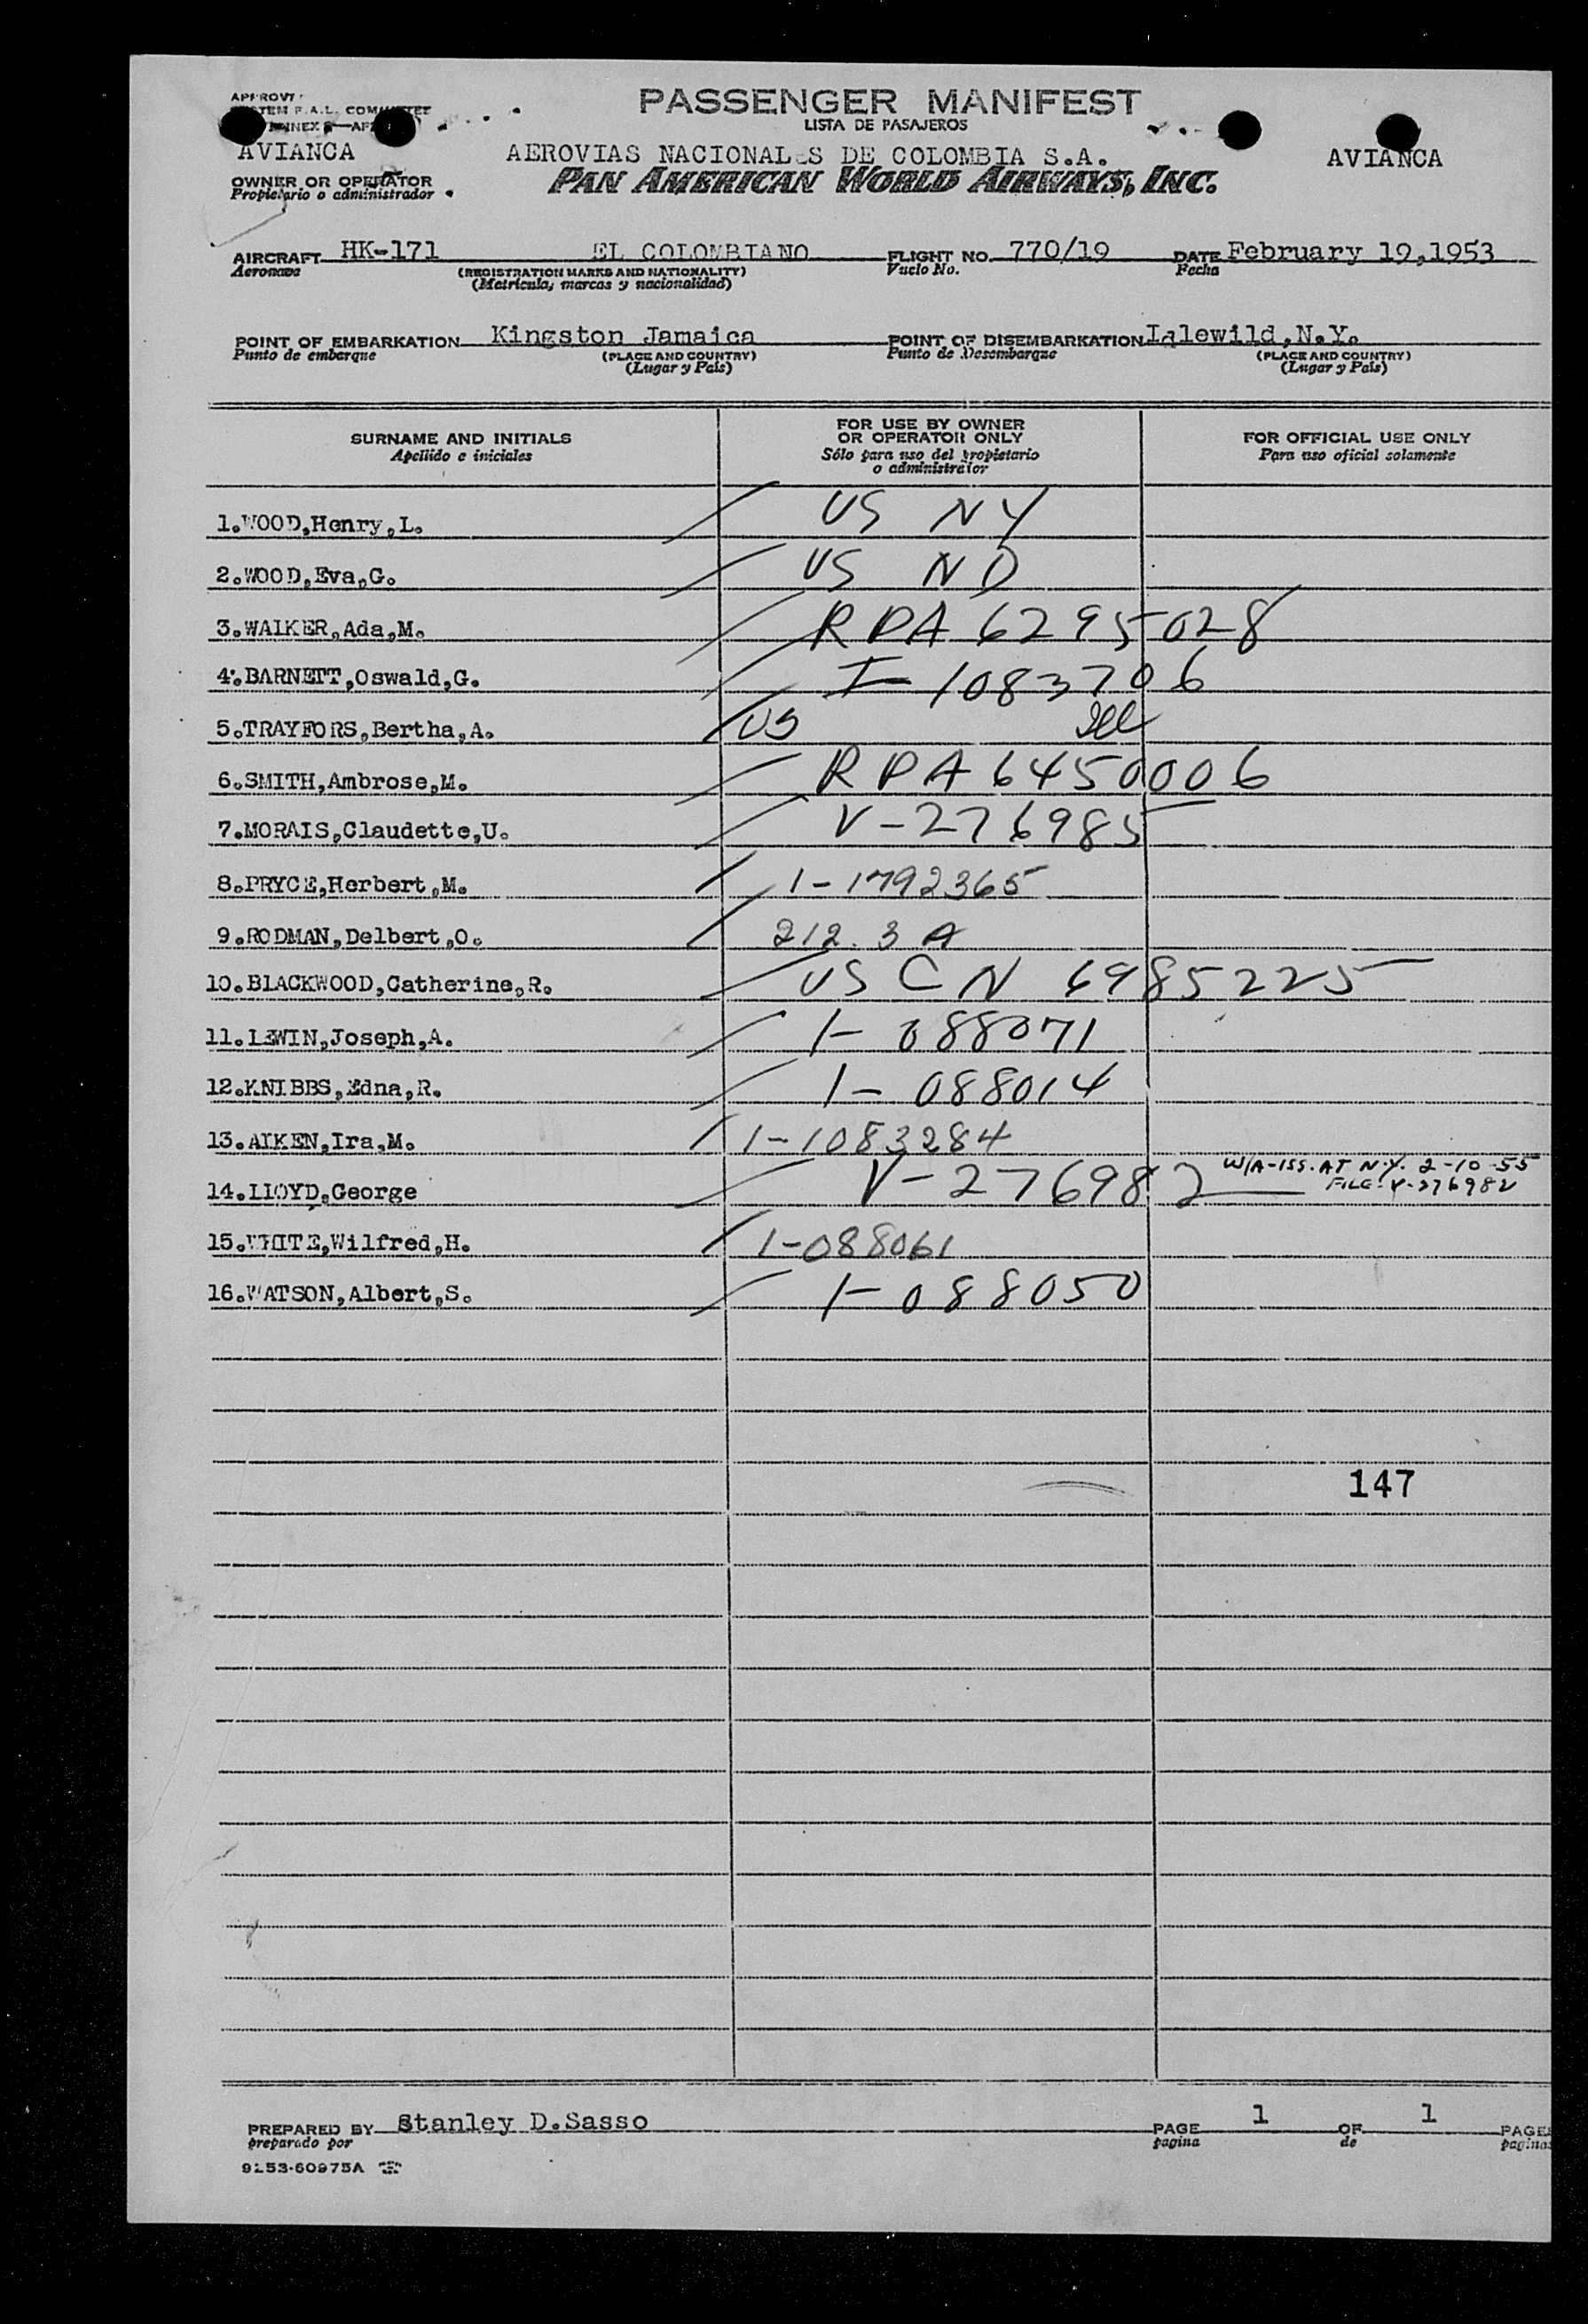 PASSENGER MANIFEST
LISTA DE PASAJEROS
AVIANCA
AEROVIAS NACIONALES DE COLOMBIA S.A.
AVIANCA
OWNER OR OPERATOR
Propietario o administrador
PAN AMERICAN WORLD AIRWAYS, INC.
AIRCRAFT HK-171 EL COLOMBIANO FLIGHT NO. 770/19 DATE February 19,1953
Aeronave (REGISTRATION MARKS AND NATIONALITY) Vuelo No. Fecha
(Matricula, marcas y nacionalidad)
POINT OF EMBARKATION Kingston Jamaica POINT OF DISEMBARKATION Idlewild,N.Y.
Punto de embarque (PLACE AND COUNTRY) Punto de Desembarque (PLACE AND COUNTRY)
(Lugar y País) (Lugar y País)
SURNAME AND INITIALS
Apellido e iniciales
FOR USE BY OWNER
OR OPERATOR ONLY
Sólo para uso del propietario
o administrator
FOR OFFICIAL USE ONLY
Para uso oficial solamente
1.WOOD,Henry,L. US NY
2.WOOD,Eva,G. US ND
3.WALKER,Ada,M. RPA 6295028
4.BARNETT,Oswald,G. I-1083706
5.TRAYFORS,Bertha,A. US
6.SMITH,Ambrose,M. RPA 6450006
7.MORAIS,Claudette,U. V-276985
8.PRYCE,Herbert,M. 1-1792365
9.RODMAN,Delbert,O. 212.3 A
10.BLACKWOOD,Catherine,R. US CN 6985225
11.LEWIN,Joseph,A. 1-088071
12.KNIBBS,Edna,R. 1-088014
13.AIKEN,Ira,M. 1-1083284
14.LLOYD,George V-276982 W/A-ISS. AT N.Y. 2-10-55
FILE-V-276982
15.WHITE,Wilfred,H. 1-088061
16.WATSON,Albert,S. 1-088050
147
PREPARED BY Stanley D.Sasso PAGE 1 OF 1 PAGE
preparado por pagina de paginas
9253-60975A